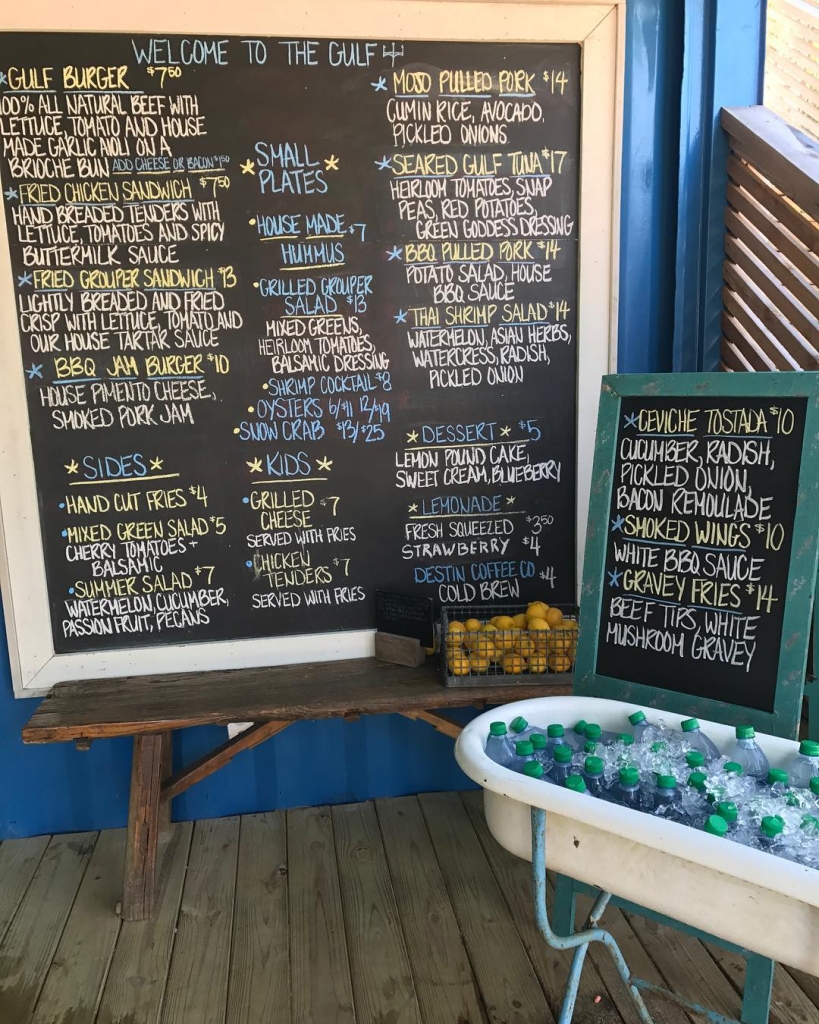 WELCOME TO THE GULF
*GULF BURGER $7.50
100% ALL NATURAL BEEF WITH
LETTUCE, TOMATO AND HOUSE
MADE GARLIC AIOLI ON A
BRIOCHE BUN ADD CHEESE OR BACON $1.50
*FRIED CHICKEN SANDWICH $7.50
HAND BREADED TENDERS WITH
LETTUCE, TOMATOES AND SPICY
BUTTERMILK SAUCE
*FRIED GROUPER SANDWICH $13
LIGHTLY BREADED AND FRIED
CRISP WITH LETTUCE, TOMATO AND
OUR HOUSE TARTAR SAUCE
* BBQ JAM BURGER $10
HOUSE PIMENTO CHEESE,
SMOKED PORK JAM
*SIDES*
•HAND CUT FRIES $4
•MIXED GREEN SALAD $5
CHERRY TOMATOES +
BALSAMIC
•SUMMER SALAD $7
WATERMELON, CUCUMBER,
PASSION FRUIT, PECANS
*SMALL*
PLATES
•HOUSE MADE $7
HUMMUS
•GRILLED GROUPER
SALAD $13
MIXED GREENS,
HEIRLOOM TOMATOES,
BALSAMIC DRESSING
•SHRIMP COCKTAIL $8
•OYSTERS 6/$11 12/$19
•SNOW CRAB $13/$25
*KIDS*
•GRILLED $7
CHEESE
SERVED WITH FRIES
•CHICKEN
TENDERS $7
SERVED WITH FRIES
*MOJO PULLED PORK $14
CUMIN RICE, AVOCADO,
PICKLED ONIONS
*SEARED GULF TUNA $17
HEIRLOOM TOMATOES, SNAP
PEAS, RED POTATOES,
GREEN GODDESS DRESSING
*BBQ PULLED PORK $14
POTATO SALAD, HOUSE
BBQ SAUCE
*THAI SHRIMP SALAD $14
WATERMELON, ASIAN HERBS,
WATERCRESS, RADISH,
PICKLED ONION
*DESSERT* $5
LEMON POUND CAKE,
SWEET CREAM, BLUEBERRY
*LEMONADE*
FRESH SQUEEZED $3.50
STRAWBERRY $4
DESTIN COFFEE CO
COLD BREW $4
*CEVICHE TOSTADA $10
CUCUMBER, RADISH,
PICKLED ONION,
BACON REMOULADE
*SMOKED WINGS $10
WHITE BBQ SAUCE
*GRAVEY FRIES $14
BEEF TIPS, WHITE
MUSHROOM GRAVEY